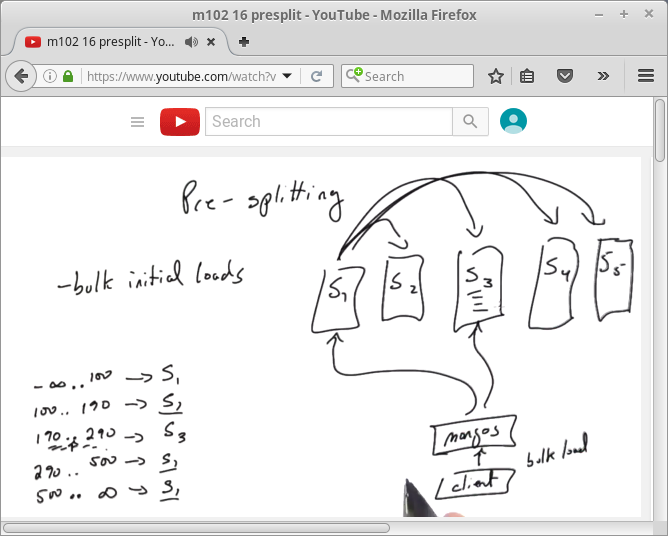 m102 16 presplit - YouTube - Mozilla Firefox
m102 16 presplit - Yo...
https://www.youtube.com/watch?v
Search
Search
Pre-splitting
-bulk initial loads
S1 S2 S3 S4 S5
-∞..100 → S1
100..190 → S1
190..290 → S3
290..500 → S1
500..∞ → S1
mongos
client
bulk load